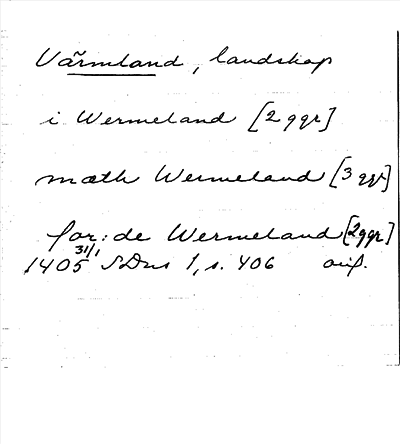 Värmland, landskap
i Wermeland [2 ggr]
mæth Wermeland [3 ggr]
for: de Wermeland [2 ggr]
31/1
1405 SDns 1, s. 406 avs.